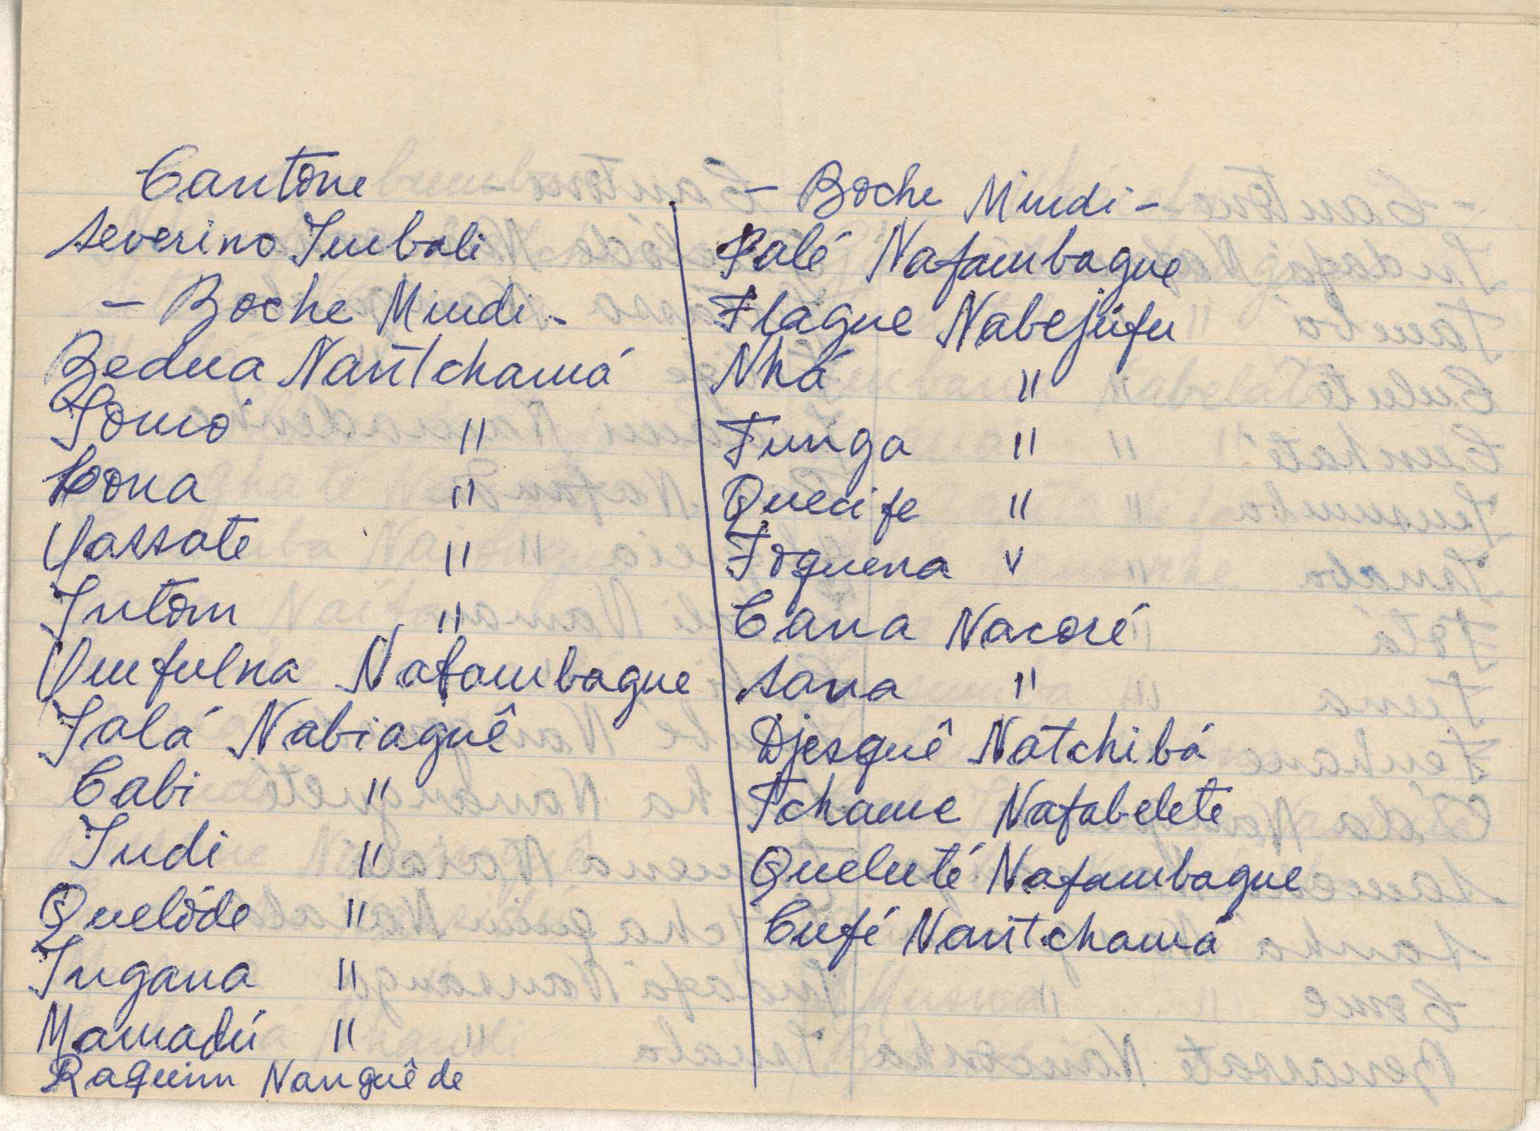 Cantone
Severino Imbali
- Boche Mindi -
Bedna Nantchamá
Somó "
Cona "
Yassate "
Intom "
Umfulna Nafambague
Jalá Nabiaguê
Cabi "
Indi "
Quelóde "
Ingana "
Mamadú "
Raquim Nanguêde
- Boche Mindi -
Palé Nafambague
Flague Nabejúfu
Nhá "
Funga "
Quecife "
Foguena "
Cana Nacoré
Sana "
Djesquê Natchibá
Tchame Nafabelete
Queluté Nafambague
Cufé Nantchamá